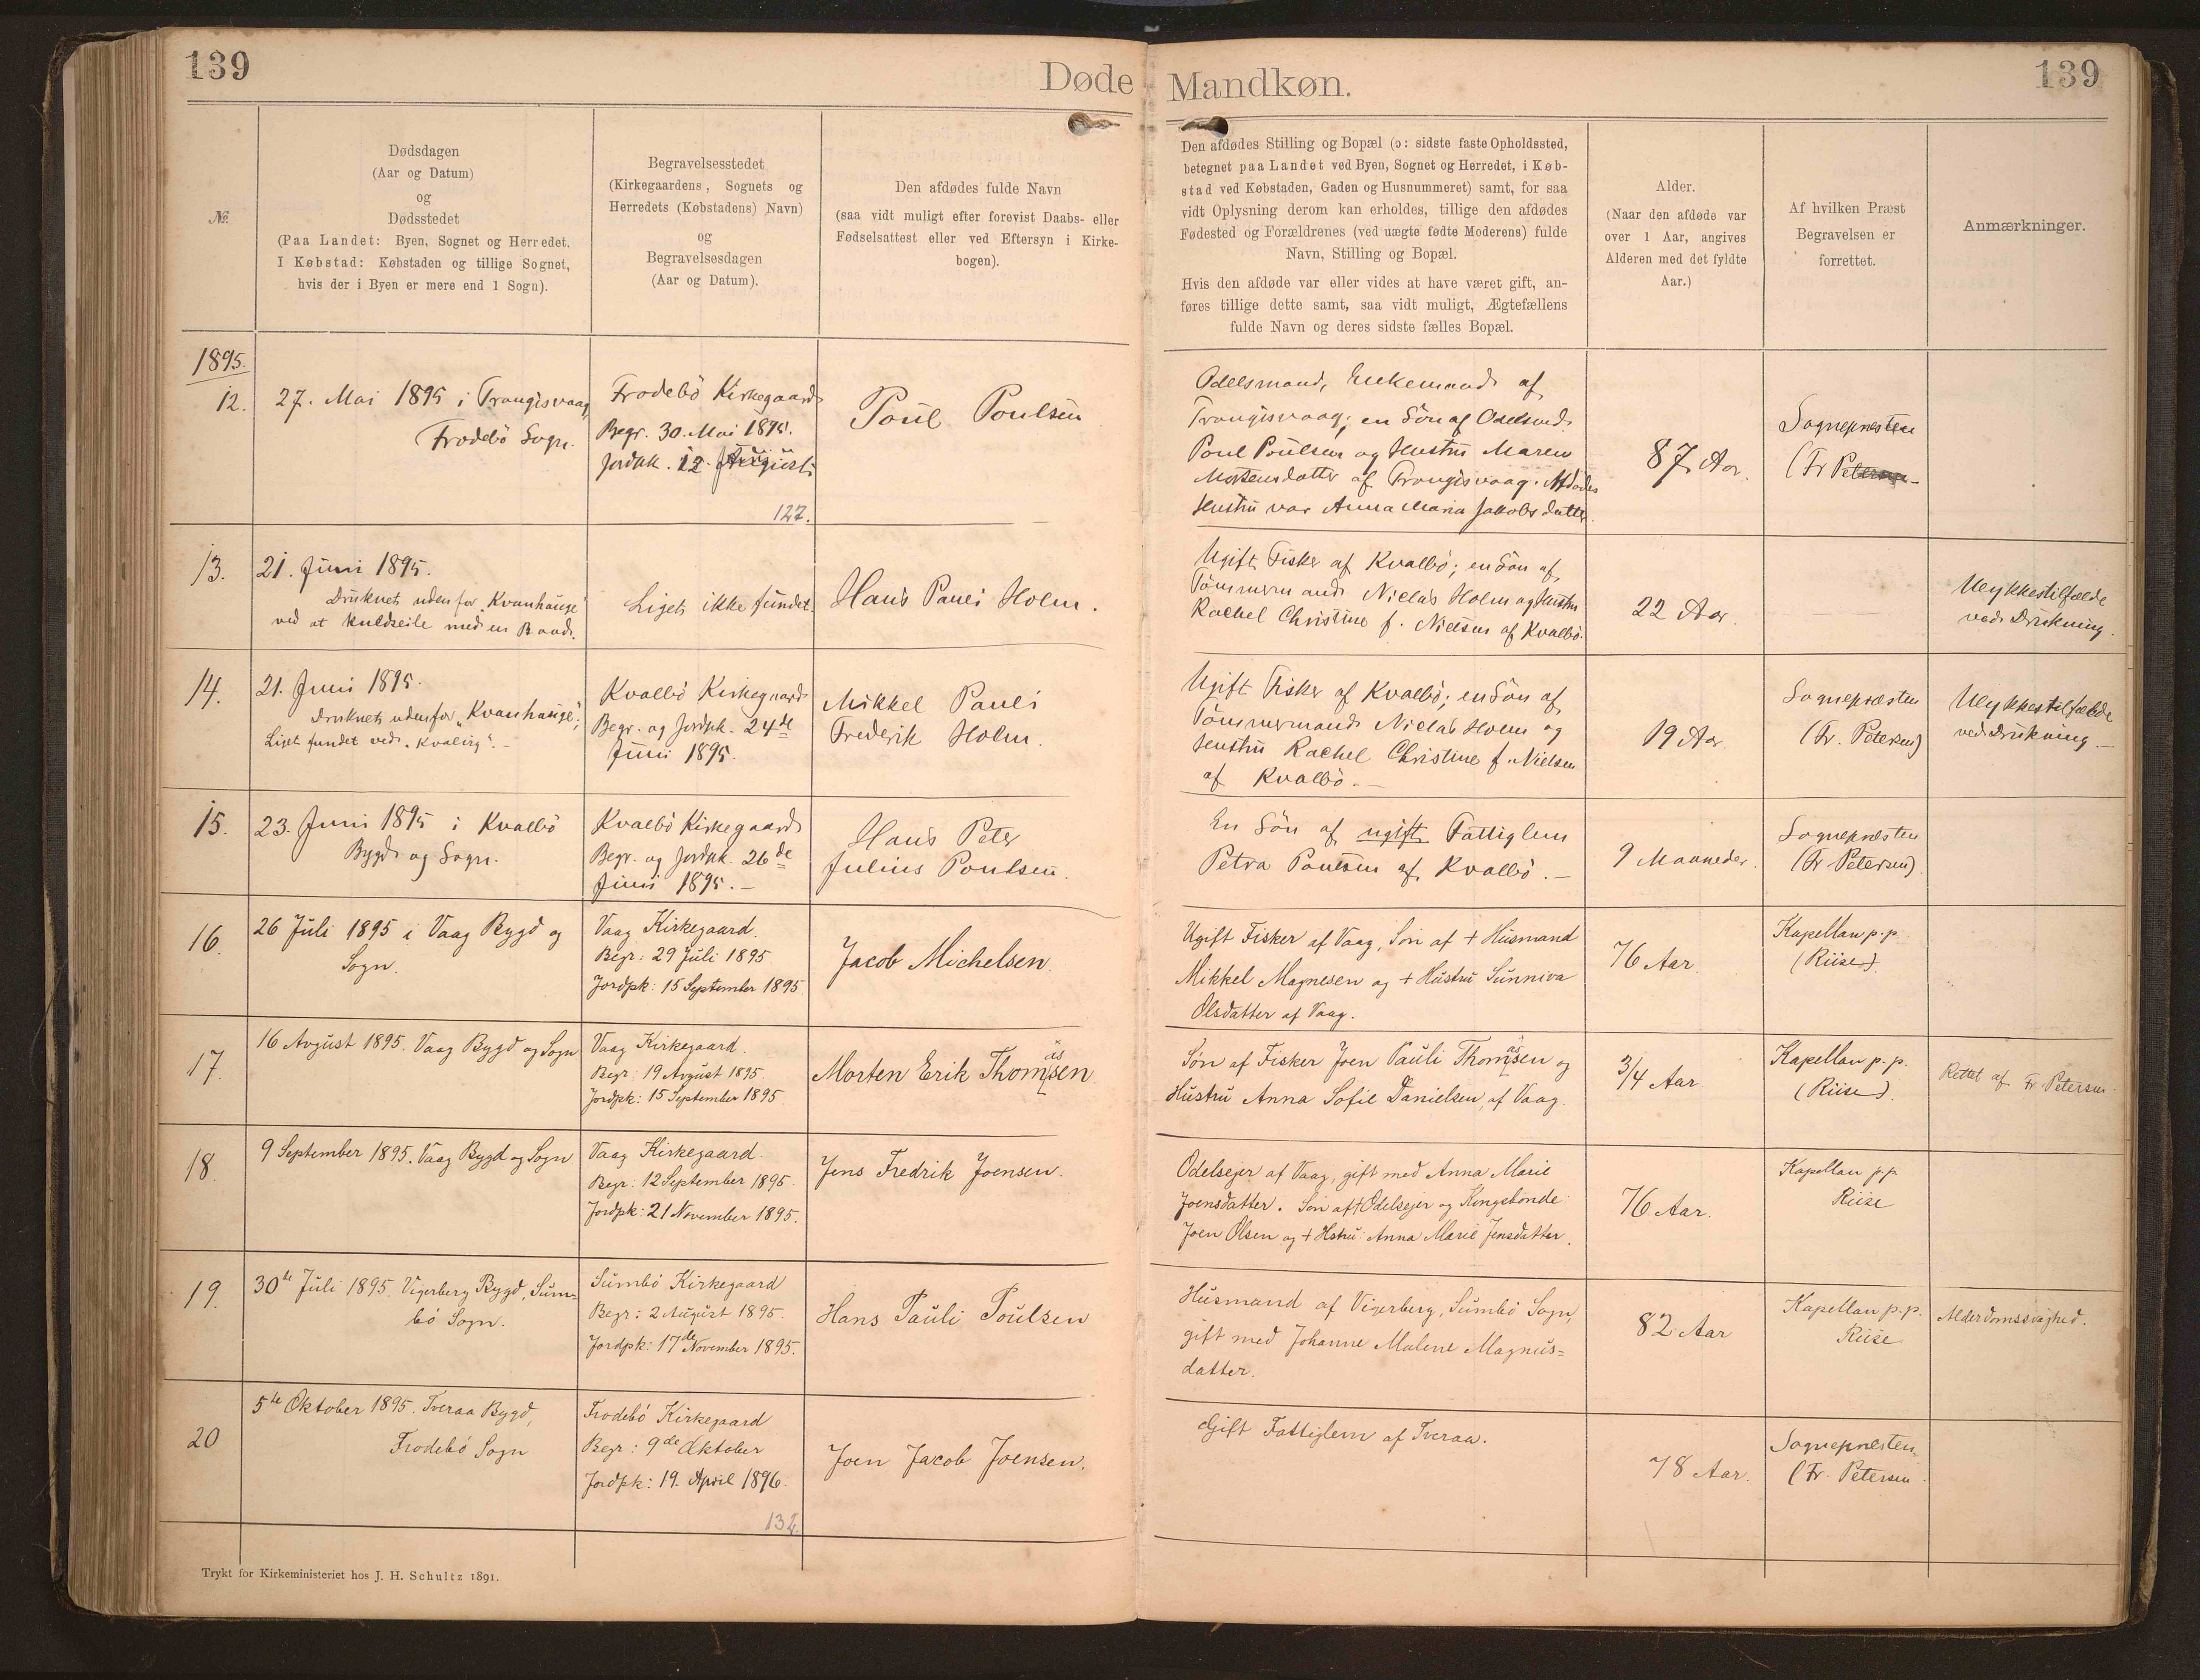 139
Døde
Mandkøn.
139
№
Dødsdagen
(Aar og Datum)
og
Dødsstedet
(Paa Landet: Byen, Sognet og Herredet.
I Købstad: Købstaden og tillige Sognet,
hvis der i Byen er mere end 1 Sogn).
Begravelsesstedet
(Kirkegaardens, Sognets og
Herredets (Købstadens) Navn)
og
Begravelsesdagen
(Aar og Datum).
Den afdødes fulde Navn
(saa vidt muligt efter forevist Daabs- eller
Fødselsattest eller ved Eftersyn i Kirke-
bogen).
Den afdødes Stilling og Bopæl (ɔ: sidste faste Opholdssted,
betegnet paa Landet ved Byen, Sognet og Herredet, i Køb-
stad ved Købstaden, Gaden og Husnummeret) samt, for saa
vidt Oplysning derom kan erholdes, tillige den afdødes
Fødested og Forældrenes (ved uægte fødte Moderens) fulde
Navn, Stilling og Bopæl.
Hvis den afdøde var eller vides at have været gift, an-
føres tillige dette samt, saa vidt muligt, Ægtefællens
fulde Navn og deres sidste fælles Bopæl.
Alder.
(Naar den afdøde var
over 1 Aar, angives
Alderen med det fyldte
Aar.)
Af hvilken Præst
Begravelsen er
forrettet.
Anmærkninger.
1895.
12.
27. Mai 1895 i Trangisvaag,
Frodebö Sogn.
Frodebö Kirkegaard
Begr. 30. Mai 1895.
Jordpk. 12.
127.
Poul Poulsen
Odelsmand, Enkemand af
Trangisvaag; en Sön af Odelsmd.
Poul Poulsen og Hustru Maren
Mortensdatter af Trangisvaag. Afdödes
Hustru var Anna Maria Jakobsdatter.
87 Aar.
Sognepræsten
(Fr Petersen
13.
21. Juni 1895.
Druknet udenfor "Kvanhauge"
ved at kuldseile med en Baad.
Liget ikke fundet
Hans Pauli Holm.
Ugift Fisker af Kvalbö; en Sön af
Tömmermand Niclas Holm og Hustru
Rachel Christine f. Nielsen af Kvalbö.
22 Aar.
Ulykkestilfælde
ved Drukning.
14.
21. Juni 1895.
Druknet udenfor "Kvanhauge";
Liget fundet ved "Kvalvig". -
Kvalbö Kirkegaard
Begr. og Jordpk. 24de
Juni 1895.
Mikkel Pauli
Frederik Holm.
Ugift Fisker af Kvalbö; en Sön af
Tömmermand Niclas Holm og
Hustru Rachel Christine f. Nielsen
af Kvalbö. -
19 Aar
Sognepræsten
(Fr. Petersen)
Ulykkestilfælde
ved Drukning. -
15.
23. Juni 1895 i Kvalbö
Bygd og Sogn.
Kvalbö Kirkegaard
Begr. og Jordpk. 26de
Juni 1895. -
Hans Peter
Julius Poulsen.
En Sön af ugift Fattiglem
Petra Poulsen af Kvalbö. -
9 Maaneder.
Sognepræsten
(Fr Petersen).
16.
26 Juli 1895 i Vaag Bygd og
Sogn.
Vaag Kirkegaard.
Begr: 29 Juli 1895
Jordpk: 15 September 1895
Jacob Michelsen
Ugift Fisker af Vaag, Sön af + Husmand
Mikkel Magnesen og + Hustru Sunniva
Olsdatter af Vaag.
76 Aar.
Kapellan p.p.
(Riise)
17.
16 Avgust 1895. Vaag Bygd og Sogn
Vaag Kirkegaard.
Begr: 19 Avgust 1895.
Jordpk: 15 September 1895
as
Morten Erik Thomsen
as
Søn af Fisker Joen Pauli Thomsen og
Hustru Anna Sofie Danielsen af Vaag.
3/4 Aar
Kapellan p.p.
(Riise).
Rettet af Fr Petersen.
18.
9 September 1895. Vaag Bygd og Sogn
Vaag Kirkegaard.
Begr: 12 September 1895.
Jordpk: 21 November 1895.
Jens Fredrik Joensen.
Odelsejer af Vaag, gift med Anna Marie
Joensdatter. Søn af + Odelsejer og Kongebonde
Joen Olsen og + Hstru: Anna Marie Jensdatter.
76 Aar.
Kapellan p.p.
Riise
19.
30te Juli 1895. Vigerberg Bygd, Sum=
bö Sogn.
Sumbö Kirkegaard
Begr: 2 August 1895.
Jordpk: 17de November 1895.
Hans Pauli Poulsen
Husmand af Vigerberg, Sumbö Sogn,
gift med Johanne Malene Magnus=
datter.
82 Aar
Kapellan p.p.
Riise
Alderdomssvaghed.
20
5te Oktober 1895. Tveraa Bygd,
Frodebö Sogn
Frodebö Kirkegaard
Begr: 9de Oktober
Jordpk: 19. April 1896.
Joen Jacob Joensen.
Gift Fattiglem af Tveraa.
78 Aar.
Sognepræsten
(Fr. Petersen
Trykt for Kirkeministeriet hos J. H. Schultz 1891.